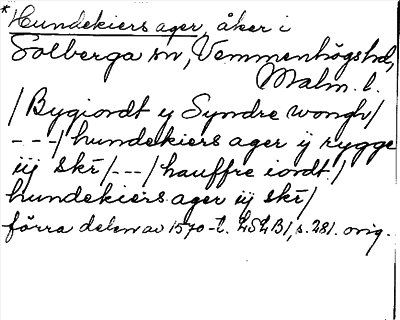 *Hundekiers ager, åker i
Solberga sn, Vemmenhögs hd,
Malm. l.
/Bygiordt y Syndre wongh/
---/hundekiers ager ÿ rygge
iij skr/---/hauffre iordt/
hundekiers ager iij skr/
förra delen av 1570-t. LSLB1, s. 281. orig.